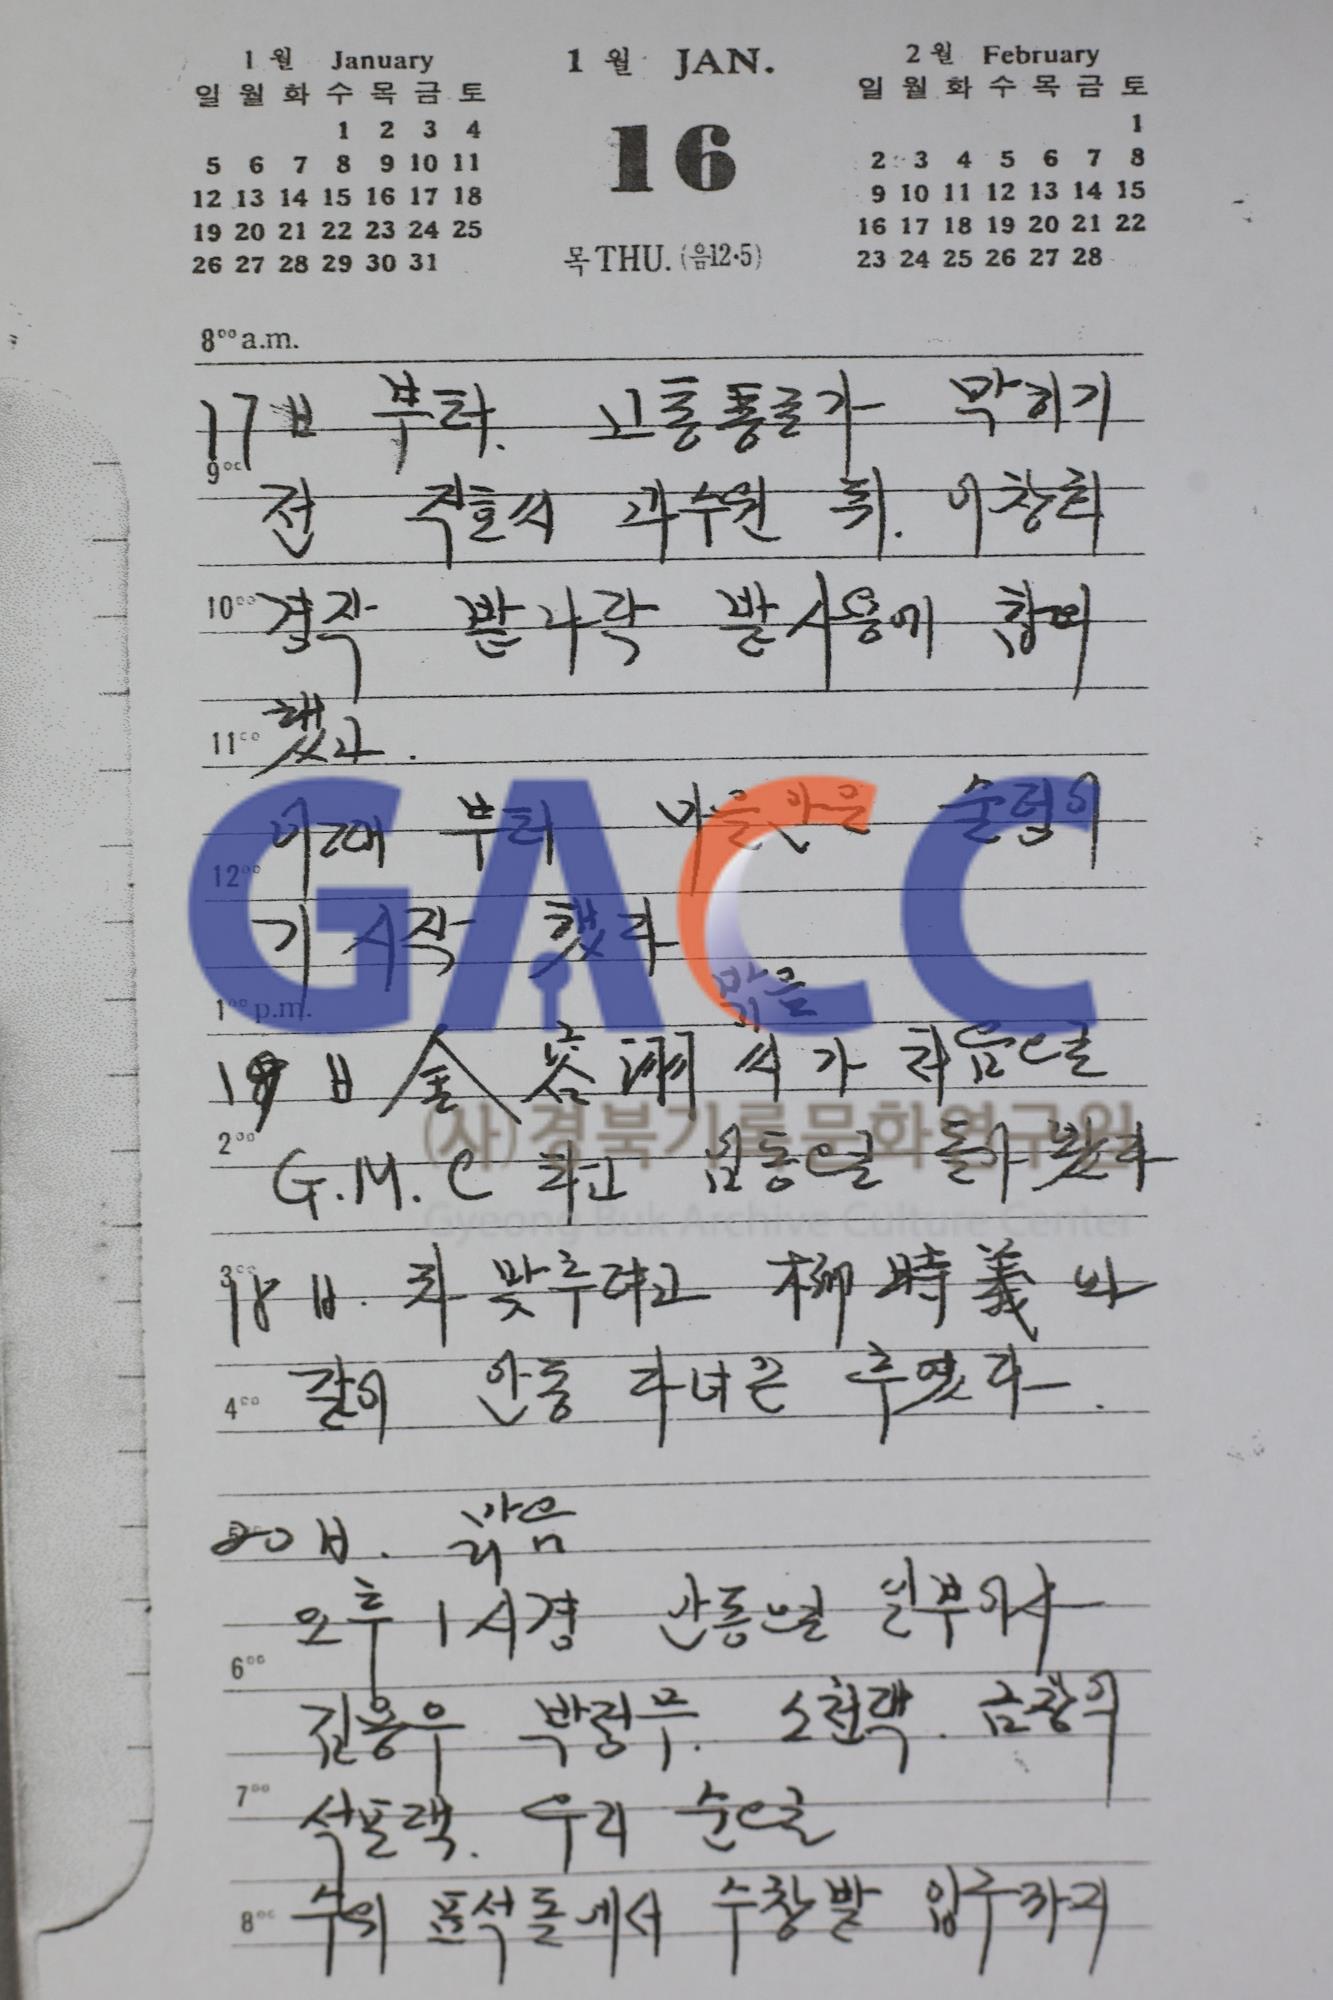 1월 January
일 월 화 수 목 금 토
1 2 3 4
5 6 7 8 9 10 11
12 13 14 15 16 17 18
19 20 21 22 23 24 25
26 27 28 29 30 31
1월 JAN.
16
목 THU. (음12·5)
2월 February
일 월 화 수 목 금 토
1
2 3 4 5 6 7 8
9 10 11 12 13 14 15
16 17 18 19 20 21 22
23 24 25 26 27 28
8⁰⁰ a.m.
17日 부터. 고통통글가 막히기
9⁰⁰
전 직흘씨 과수원 뒤. 이창희
10⁰⁰
경작 밭나락 밭 사용에 합의
11⁰⁰
했다.
이때 부터 마을안은 술렁이
12⁰⁰
기 시작 했다
1⁰⁰ p.m.
맑음
日 金 씨가 처음으로
2⁰⁰
G.M.C 타고 동으로 돌아왔다
3⁰⁰
18日. 차 맞추려고 柳時義 와
4⁰⁰
같이 안동 다녀온 후였다.
20日. 맑음
오후 1시경 안동으로 일부이사
6⁰⁰
김용우 박정무. 소천댁. 금창이
7⁰⁰
석포댁. 우리 순으로
8⁰⁰
수의 표석돌에서 수창밭 입구까지
GACC
(사)경북기록문화연구원
Gyeong Buk Archive Culture Center